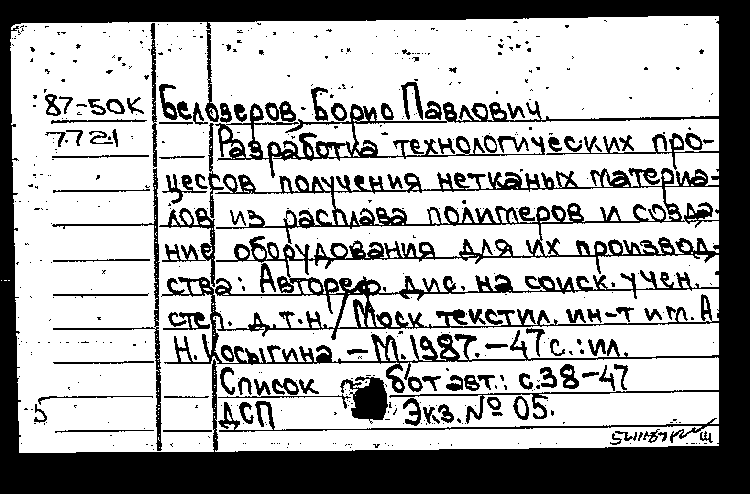 87-50К Беловеров, Борис Павлович.
7721 Разработка технологических про-
цессов получения нетканых материа-
лов из расплава полимеров и созда-
ние оборудования для их производ-
ства: Автореф. дис. на соиск. учен.
степ. д.т.н. / Моск. текстил. ин-т им. А.
Н. Косыгина. – М. 1987. – 47 с.: ил.
Список бот авт.: с.38-47
5 ДСП Экз. № 05.